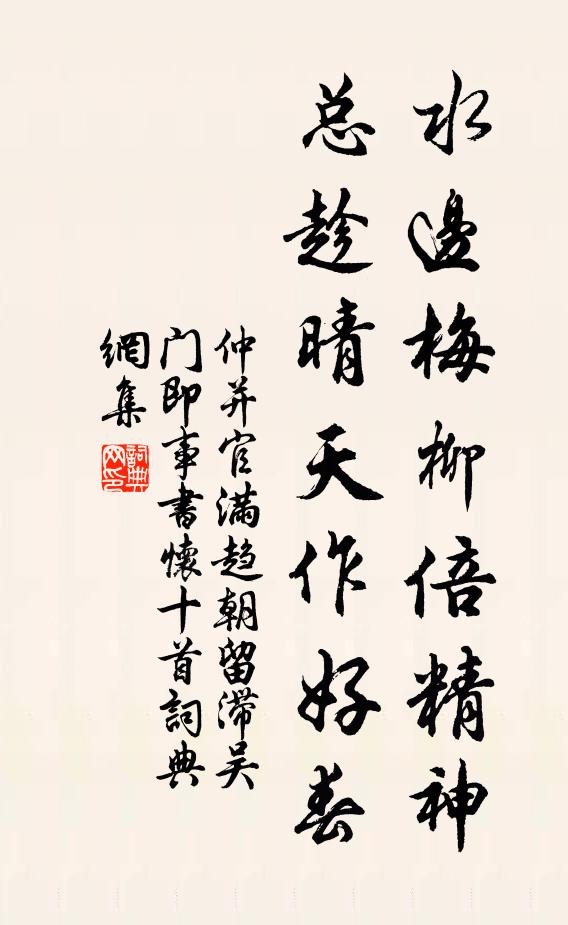 水邊梅柳倍精神
总趁晴天作好春
仲并官满趋朝留滞吴
门即事書懷十首詞典
網集
詞典
网印